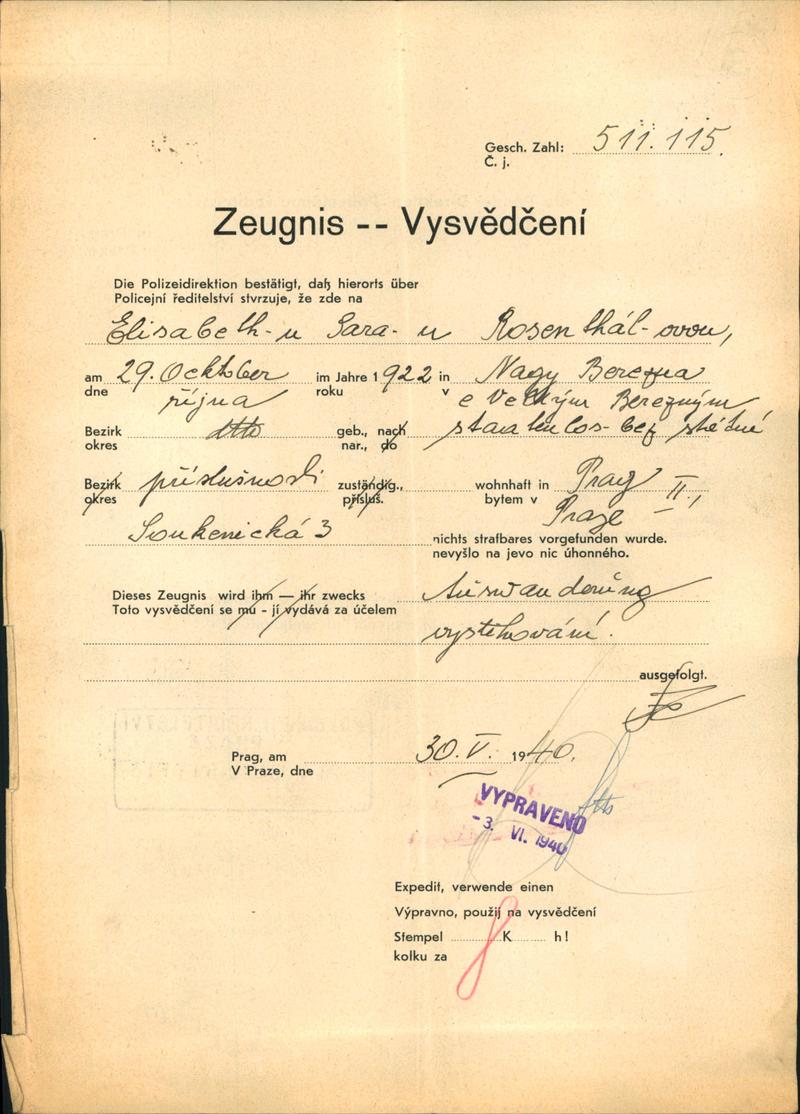 Gesch. Zahl: 511.115.
Č. j.
Zeugnis -- Vysvědčení
Die Polizeidirektion bestätigt, daß hierorts über
Policejní ředitelství stvrzuje, že zde na
Elisabeth-u Sara-u Rosenthál-ovou,
am 29. Ocktober im Jahre 1922 in Nagy Berezna
dne října roku v e Velkým Berezným
Bezirk dtto geb., nach staatenlos-bez státné
okres nar., do
Bezirk příslušnosti zuständig., wohnhaft in Prag II.,
okres přísluš. bytem v Praze
Soukenická 3 nichts strafbares vorgefunden wurde.
nevyšlo na jevo nic úhonného.
Dieses Zeugnis wird ihm — ihr zwecks Auswanderung
Toto vysvědčení se mu - jí vydává za účelem
vystěhování.
ausgefolgt.
Prag, am 30. V. 1940.
V Praze, dne
VYPRAVENO
-3. VI. 1940
Expedit, verwende einen
Výpravno, použij na vysvědčení
Stempel K h!
kolku za